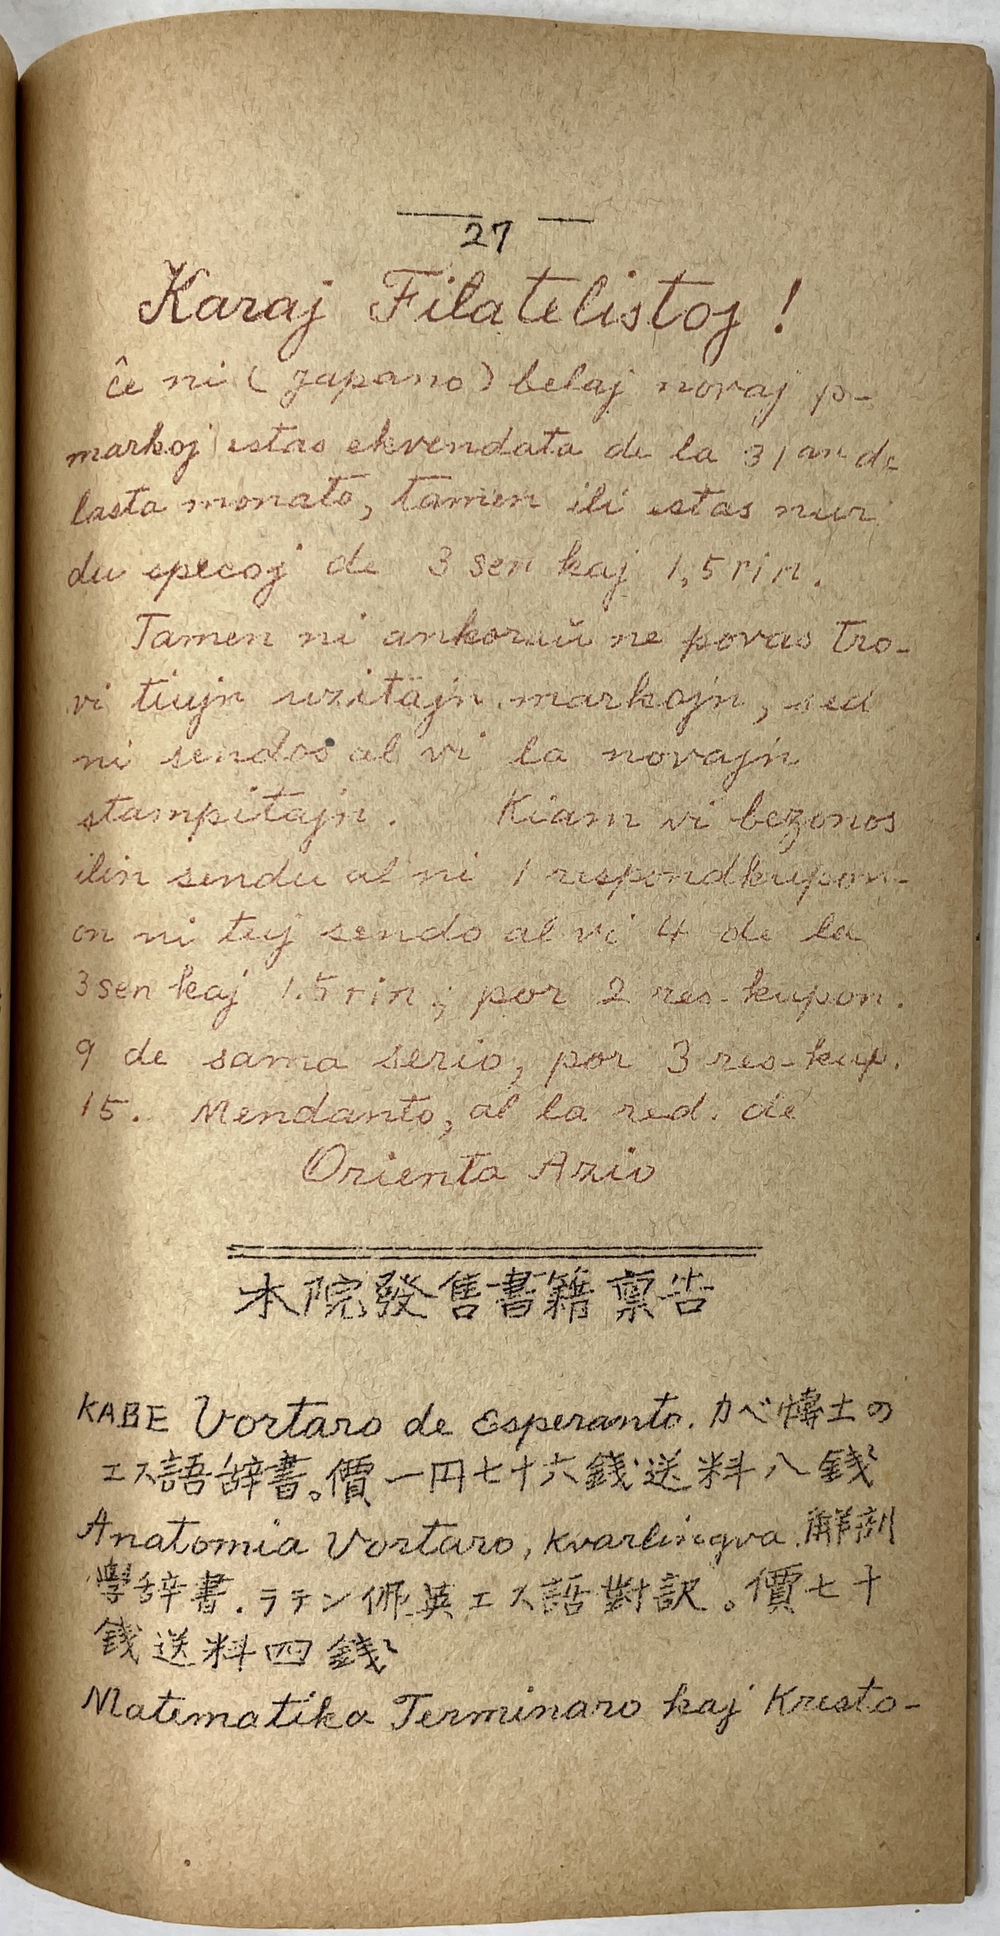 27
Karaj Filatelistoj !
ĉe ni ( japano ) belaj novaj p-
markoj estas ekvendata de la 31an de
lasta monato, tamen ili estas nur
du specoj de 3 sen kaj 1,5 rin.
Tamen ni ankoraŭ ne povas tro-
vi tiujn uzitajn markojn, sed
ni sendos al vi la novajn
stampitajn. Kiam vi bezonos
ilin sendu al ni 1 respondkupon-
on ni tuj sendo al vi 4 de la
3 sen kaj 1.5 rin ; por 2 res-kupon.
9 de sama serio, por 3 res-kup.
15. Mendanto, al la red. de
Orienta Azio
本院發售書籍稟告
KABE Vortaro de Esperanto. カベ博士の
エス語辞書。價一円七十六錢送料八錢
Anatomia Vortaro, kvarlingva. 解剖
學辞書. ラテン佛英エス語對訳。價七十
錢送料四錢
Matematika Terminaro kaj Kresto-